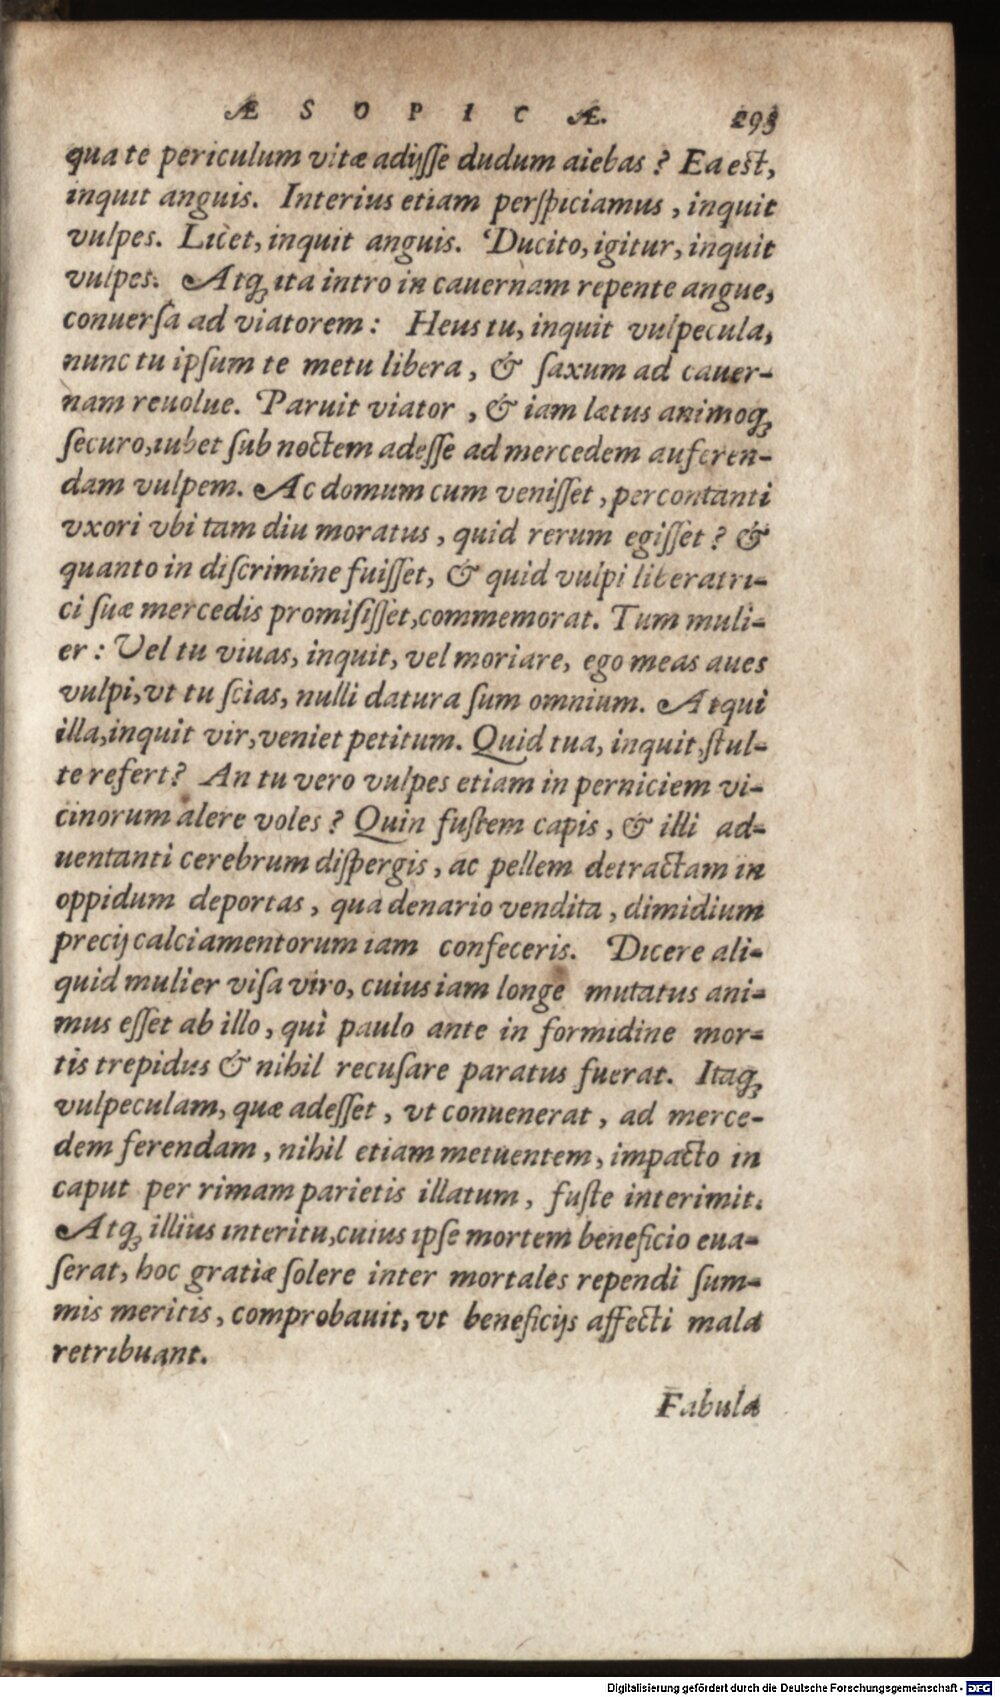 ÆSOPICÆ. 293
qua te periculum vitæ adijsse dudum aiebas? Ea est,
inquit anguis. Interius etiam perspiciamus, inquit
vulpes. Licet, inquit anguis. Ducito, igitur, inquit
vulpes. Atq; ita intro in cauernam repente angue,
conuersa ad viatorem: Heus tu, inquit vulpecula,
nunc tu ipsum te metu libera, & saxum ad cauer-
nam reuolue. Paruit viator, & iam lætus animoq;
securo, iubet sub noctem adesse ad mercedem auferen-
dam vulpem. Ac domum cum venisset, percontanti
vxori vbi tam diu moratus, quid rerum egisset? &
quanto in discrimine fuisset, & quid vulpi liberatri-
ci suæ mercedis promisisset, commemorat. Tum muli-
er: Vel tu viuas, inquit, vel moriare, ego meas aues
vulpi, vt tu scias, nulli datura sum omnium. Atqui
illa, inquit vir, veniet petitum. Quid tua, inquit, stul-
te refert? An tu vero vulpes etiam in perniciem vi-
cinorum alere voles? Quin fustem capis, & illi ad-
uentanti cerebrum dispergis, ac pellem detractam in
oppidum deportas, qua denario vendita, dimidium
precij calciamentorum iam confeceris. Dicere ali-
quid mulier visa viro, cuius iam longe mutatus ani-
mus esset ab illo, qui paulo ante in formidine mor-
tis trepidus & nihil recusare paratus fuerat. Itaq;
vulpeculam, quæ adesset, vt conuenerat, ad merce-
dem ferendam, nihil etiam metuentem, impacto in
caput per rimam parietis illatum, fuste interimit.
Atq; illius interitu, cuius ipse mortem beneficio eua-
serat, hoc gratiæ solere inter mortales rependi sum-
mis meritis, comprobauit, vt beneficijs affecti mala
retribuant.
Fabula
Digitalisierung gefördert durch die Deutsche Forschungsgemeinschaft - DFG